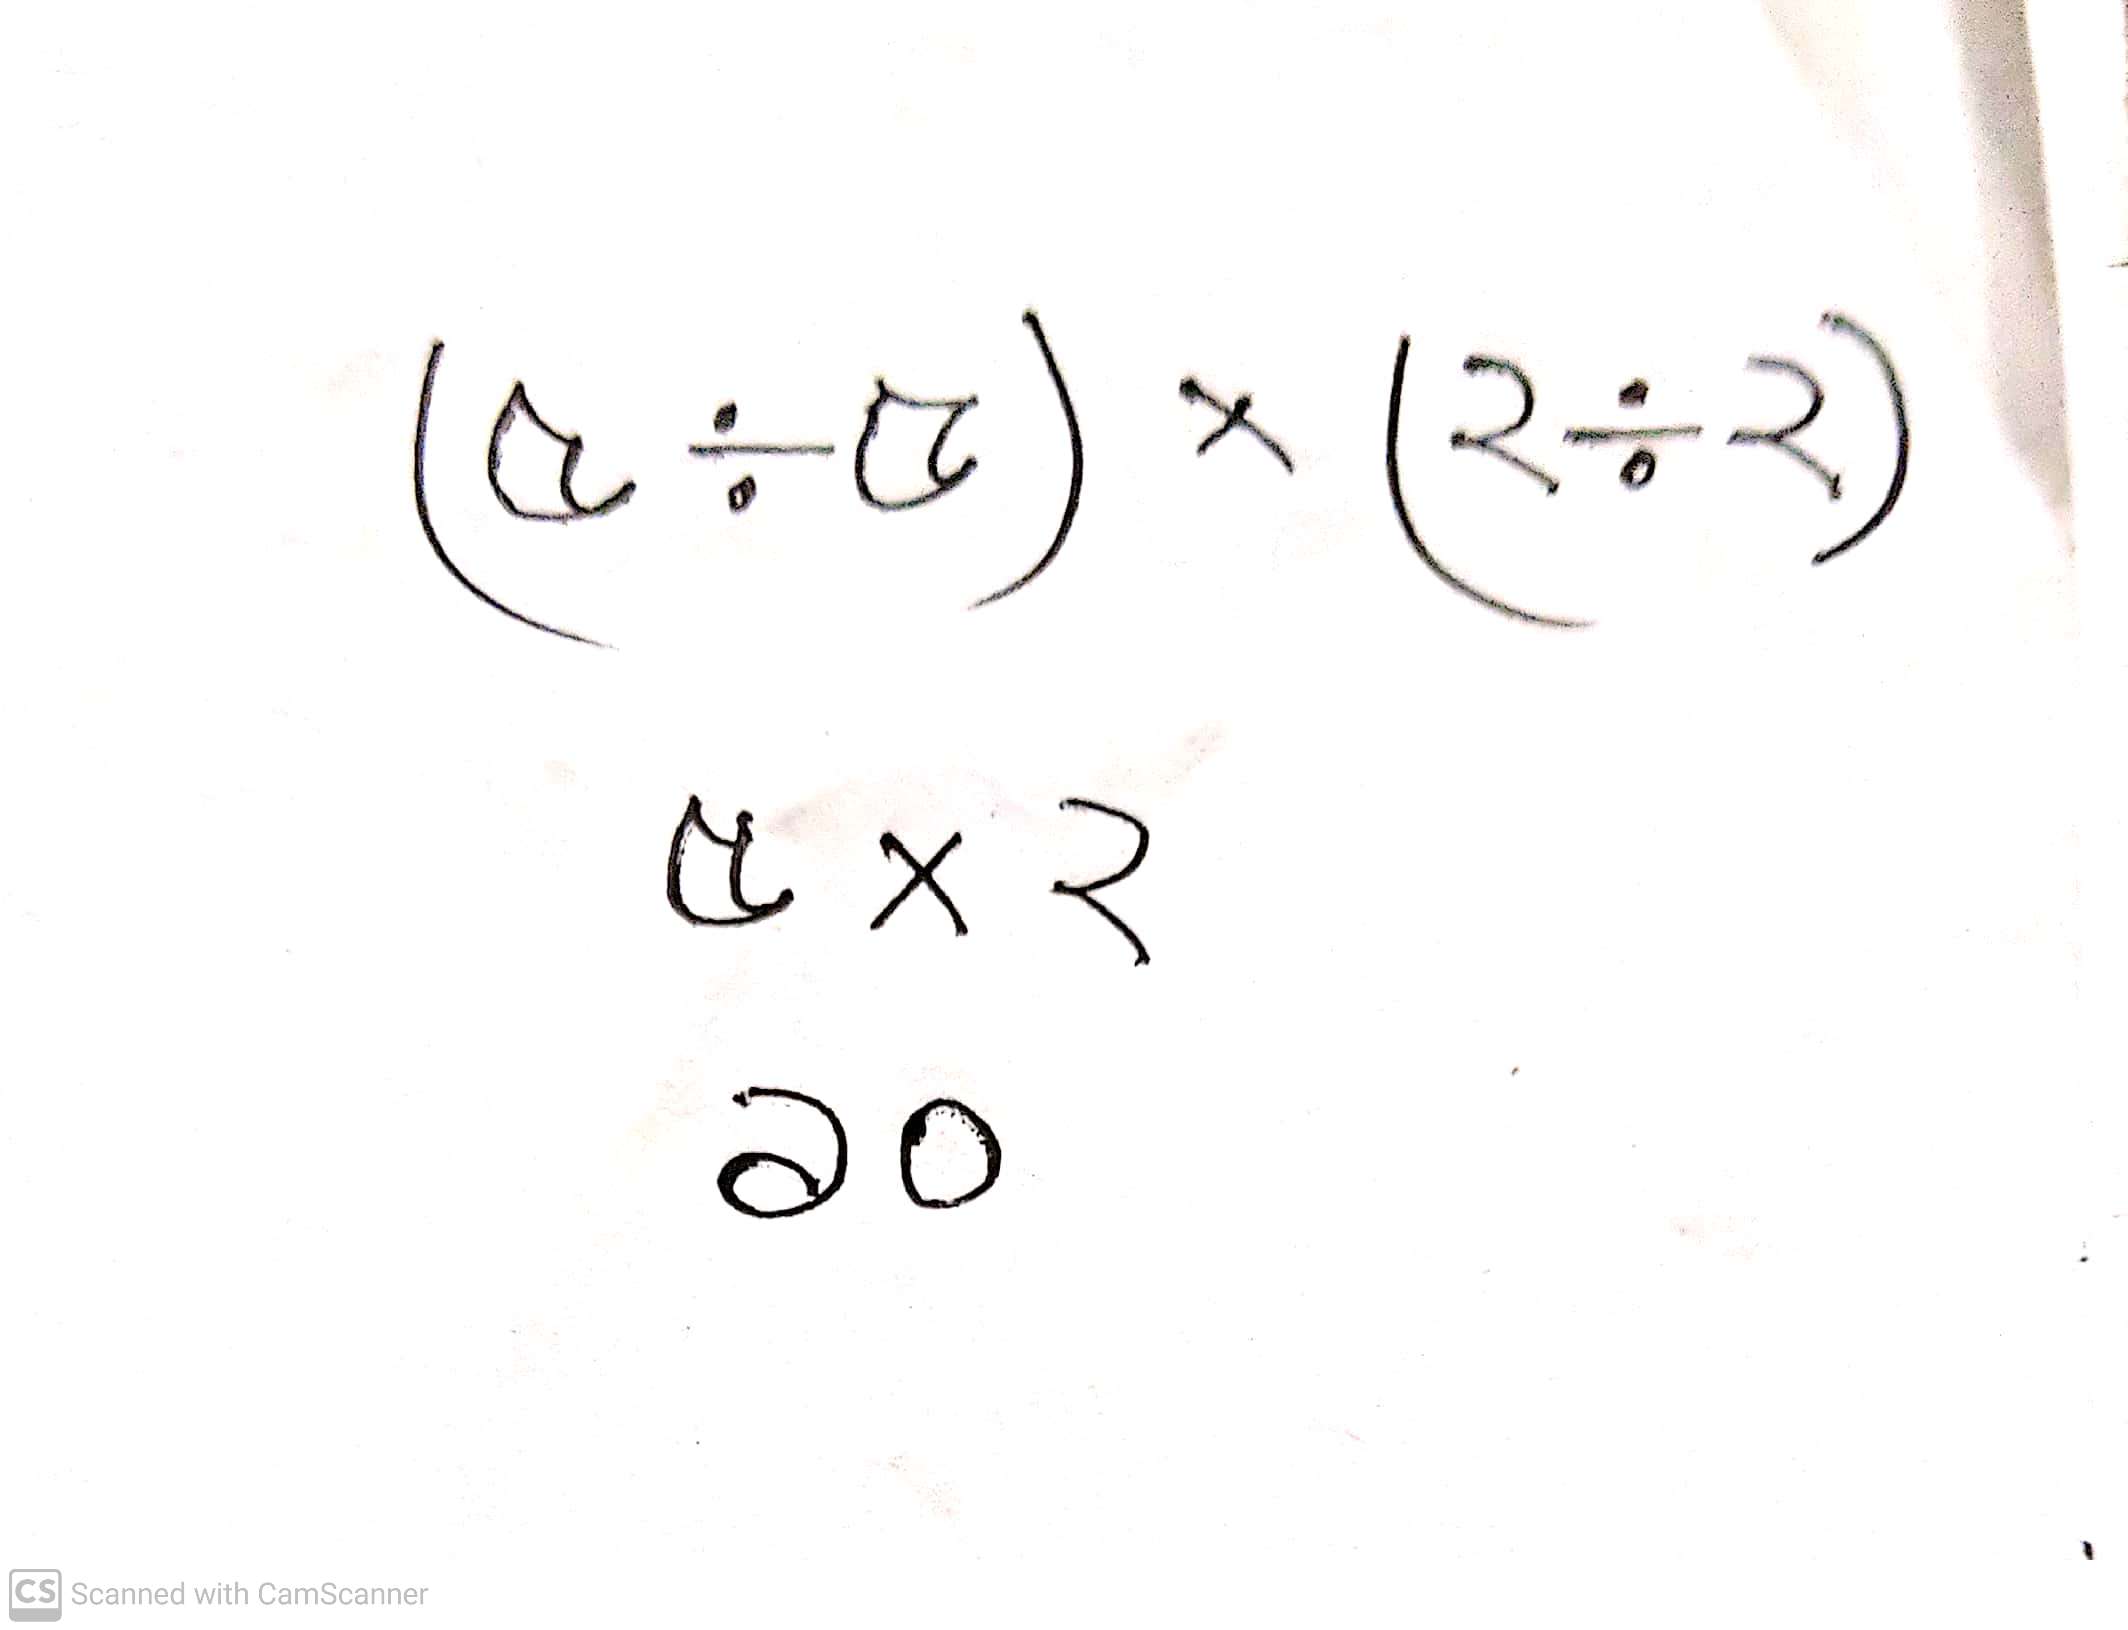 (৫ ÷ ৫) × (২ ÷ ২)
৫ × ২
১০
CS Scanned with CamScanner